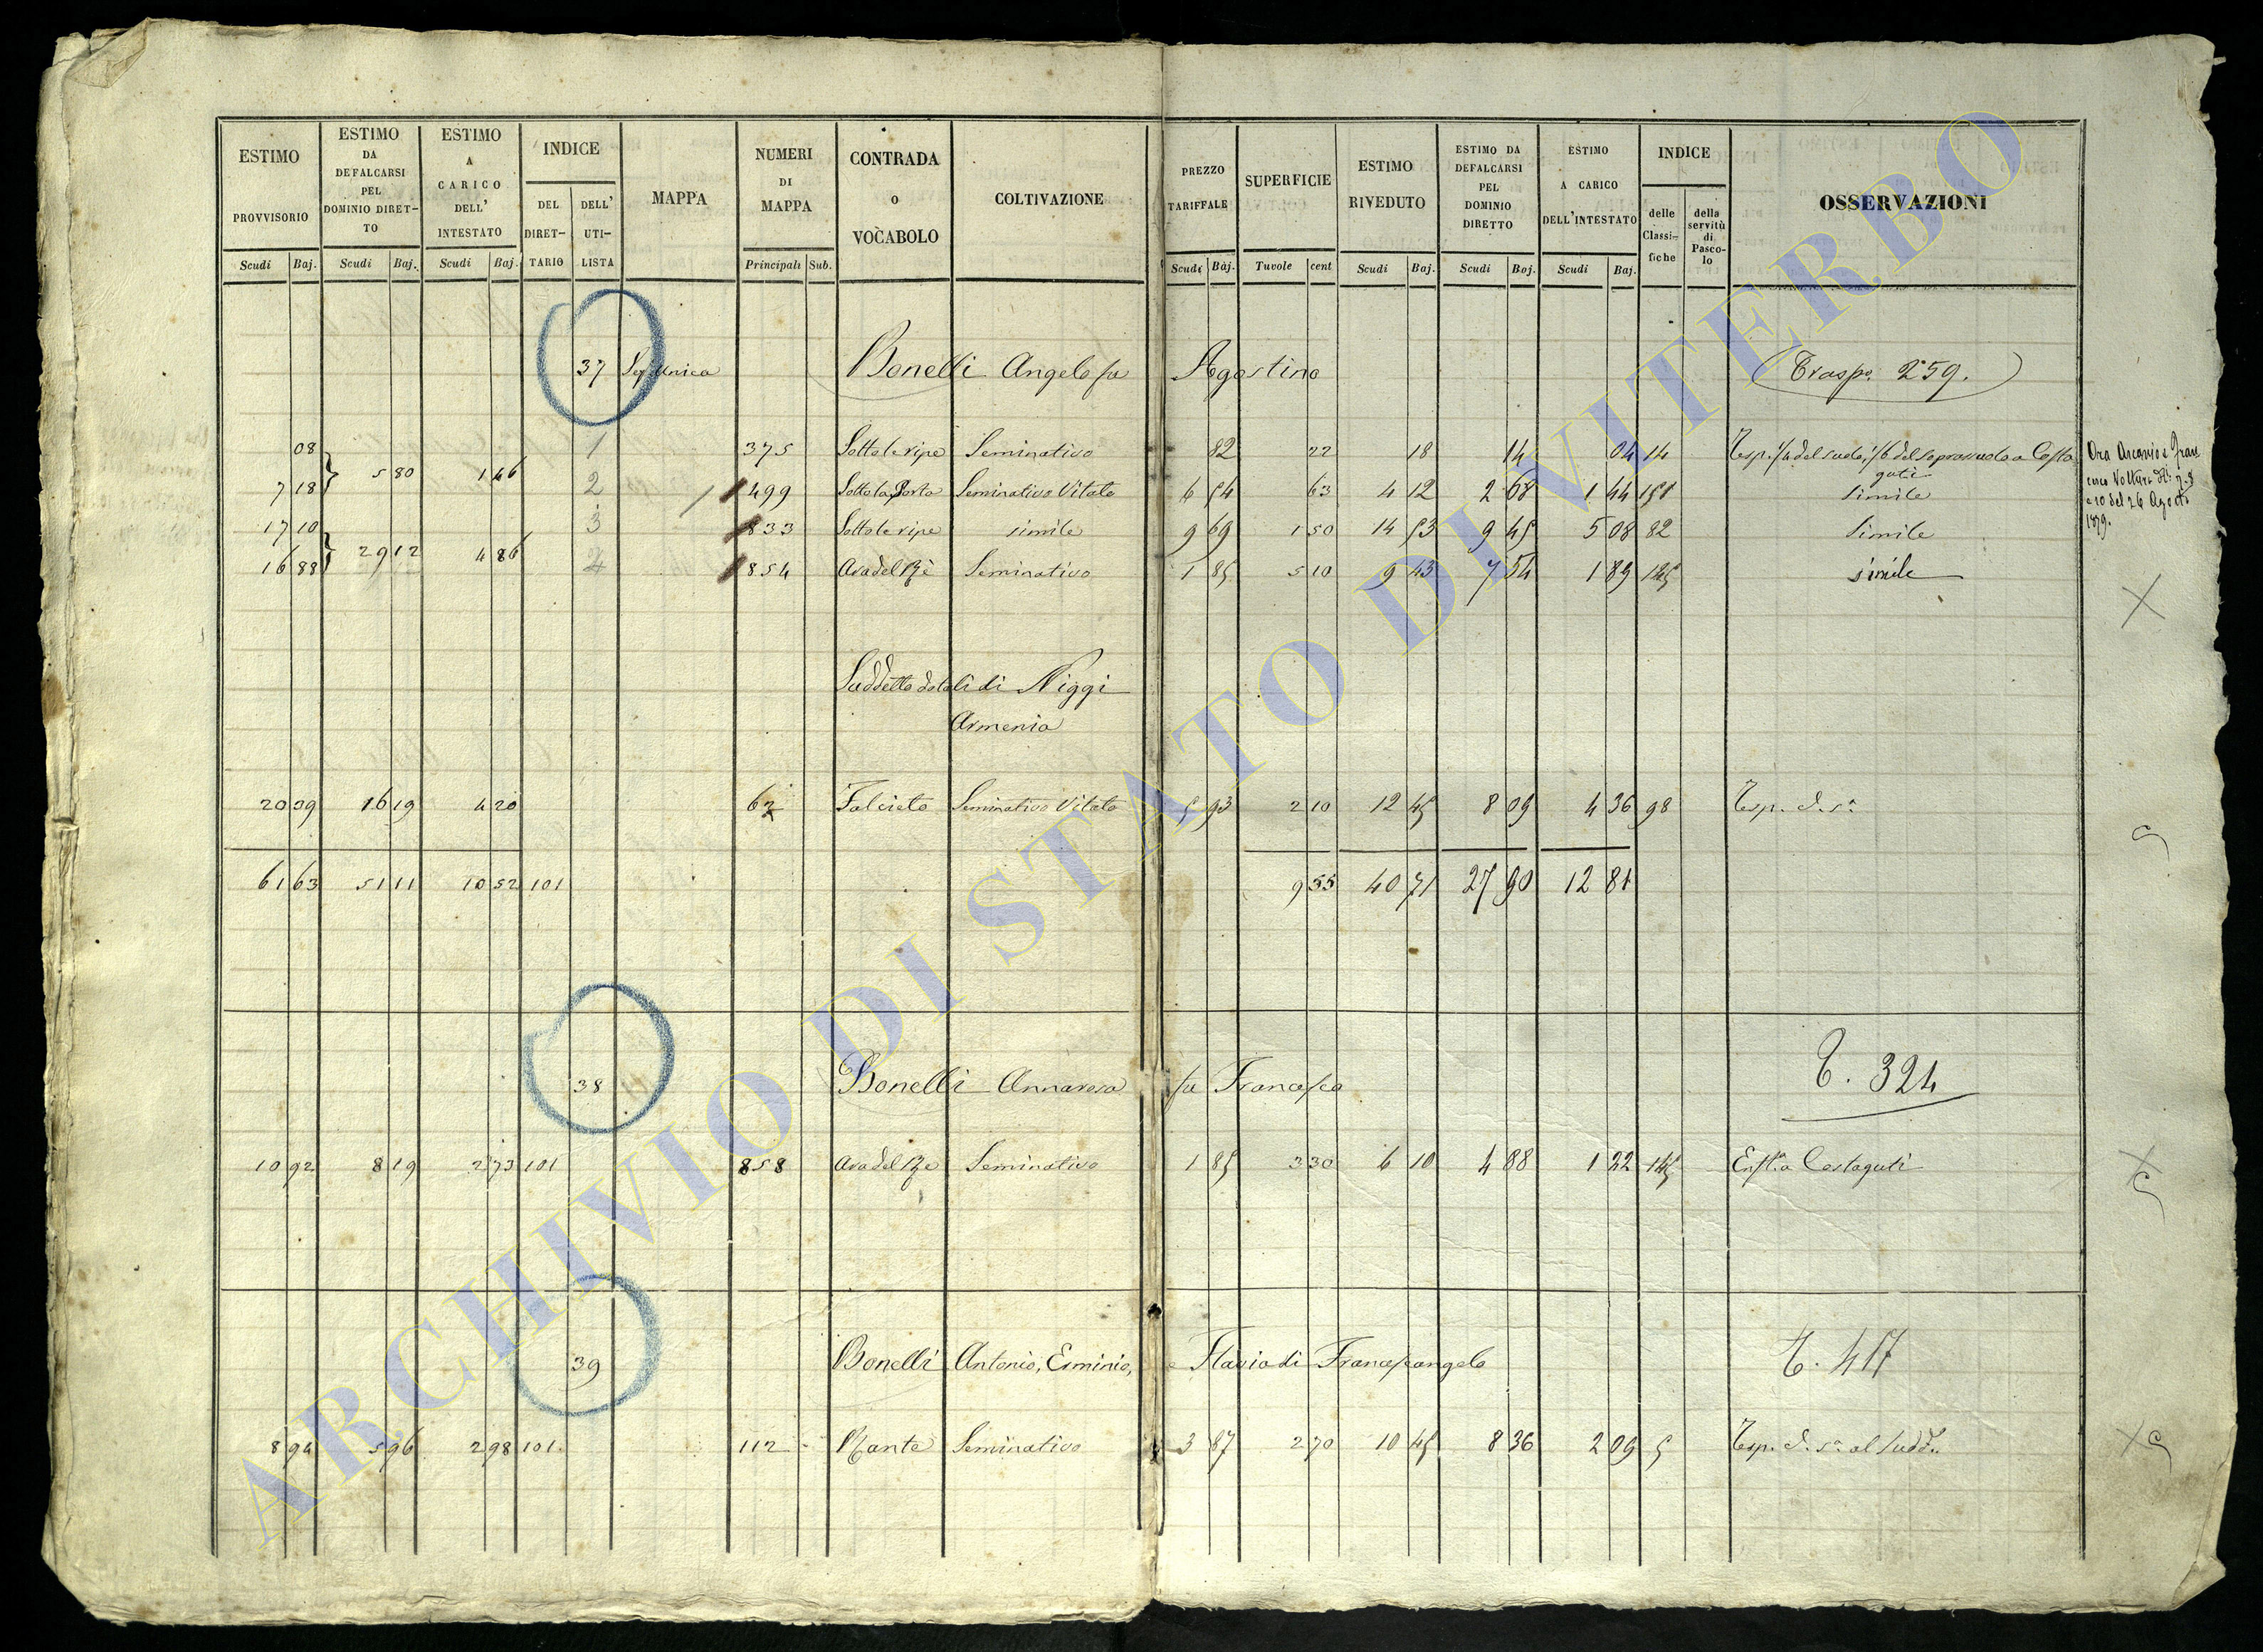 ESTIMO PROVVISORIO Scudi Baj.
ESTIMO DA DEFALCARSI PEL DOMINIO DIRET- TO Scudi Baj.
ESTIMO A CARICO DELL' INTESTATO Scudi Baj.
INDICE DEL DIRET- TARIO DELL' UTI- LISTA
MAPPA
NUMERI DI MAPPA Principali Sub.
CONTRADA O VOCABOLO
COLTIVAZIONE
PREZZO TARIFFALE Scudi Baj.
SUPERFICIE Tavole cent
ESTIMO RIVEDUTO Scudi Baj.
ESTIMO DA DEFALCARSI PEL DOMINIO DIRETTO Scudi Baj.
ESTIMO A CARICO DELL'INTESTATO Scudi Baj.
INDICE delle Classi- fiche della servitù di Pasco- lo
OSSERVAZIONI
37 Sez. Unica Bonelli Angelo fu Agostino (Trasp. 259.)
08 1 375 Sotto le ripe Seminativo 82 22 18 14 04 14 Resp. 1/4 del suolo, 1/6 del soprasuolo a Costa
5 80 1 46
guti
7 18 2 499 Sotto la Porta Seminativo Vitato 6 54 63 4 12 2 68 1 44 151 Simile
17 10 3 833 Sotto le ripe simile 9 69 1 50 14 53 9 45 5 08 82 Simile
29 12 4 86
16 88 4 854 Ara del Rè Seminativo 1 85 5 10 9 43 7 54 1 89 145 simile
e 10 del 26 Agosto
1879.
Suddetto dotali di Niggi
Armenia
20 09 16 19 4 20 62 Falcieto Seminativo Vitato 5 93 2 10 12 45 8 09 4 36 98 Resp. d. sa
61 63 51 11 10 52 101 9 55 40 71 27 90 12 81
38 Bonelli Annarosa fu Francesco T. 324
10 92 8 19 2 73 101 858 Ara del Rè Seminativo 1 85 3 30 6 10 4 88 1 22 145 Enft. a Costaguti
39 Bonelli Antonio, Erminio, e Flavio di Francescangelo T. 417
8 94 5 96 2 98 101 112 Mante Seminativo 3 87 2 70 10 45 8 36 2 09 5 Resp. d. sa al sudd.
ARCHIVIO DI STATO DI VITERBO